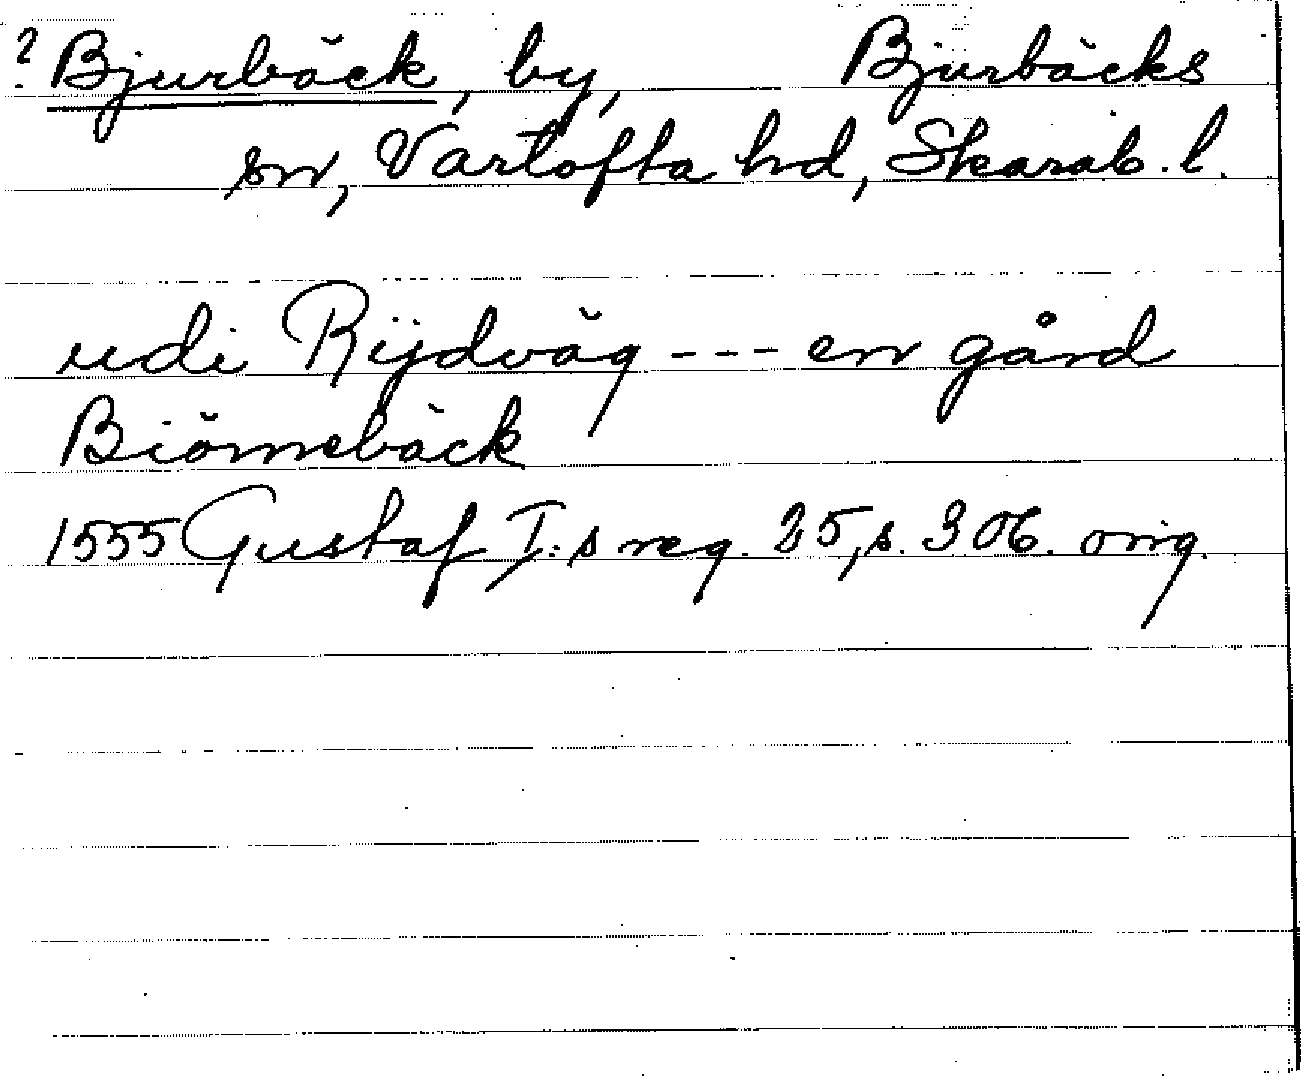 ? Bjurbäck, by, Bjurbäcks
sn, Vartofta hd, Skarab. l.
udi Rijdväg --- en gård
Biörnebäck
1555 Gustaf I:s reg. 25, s. 306. orig.